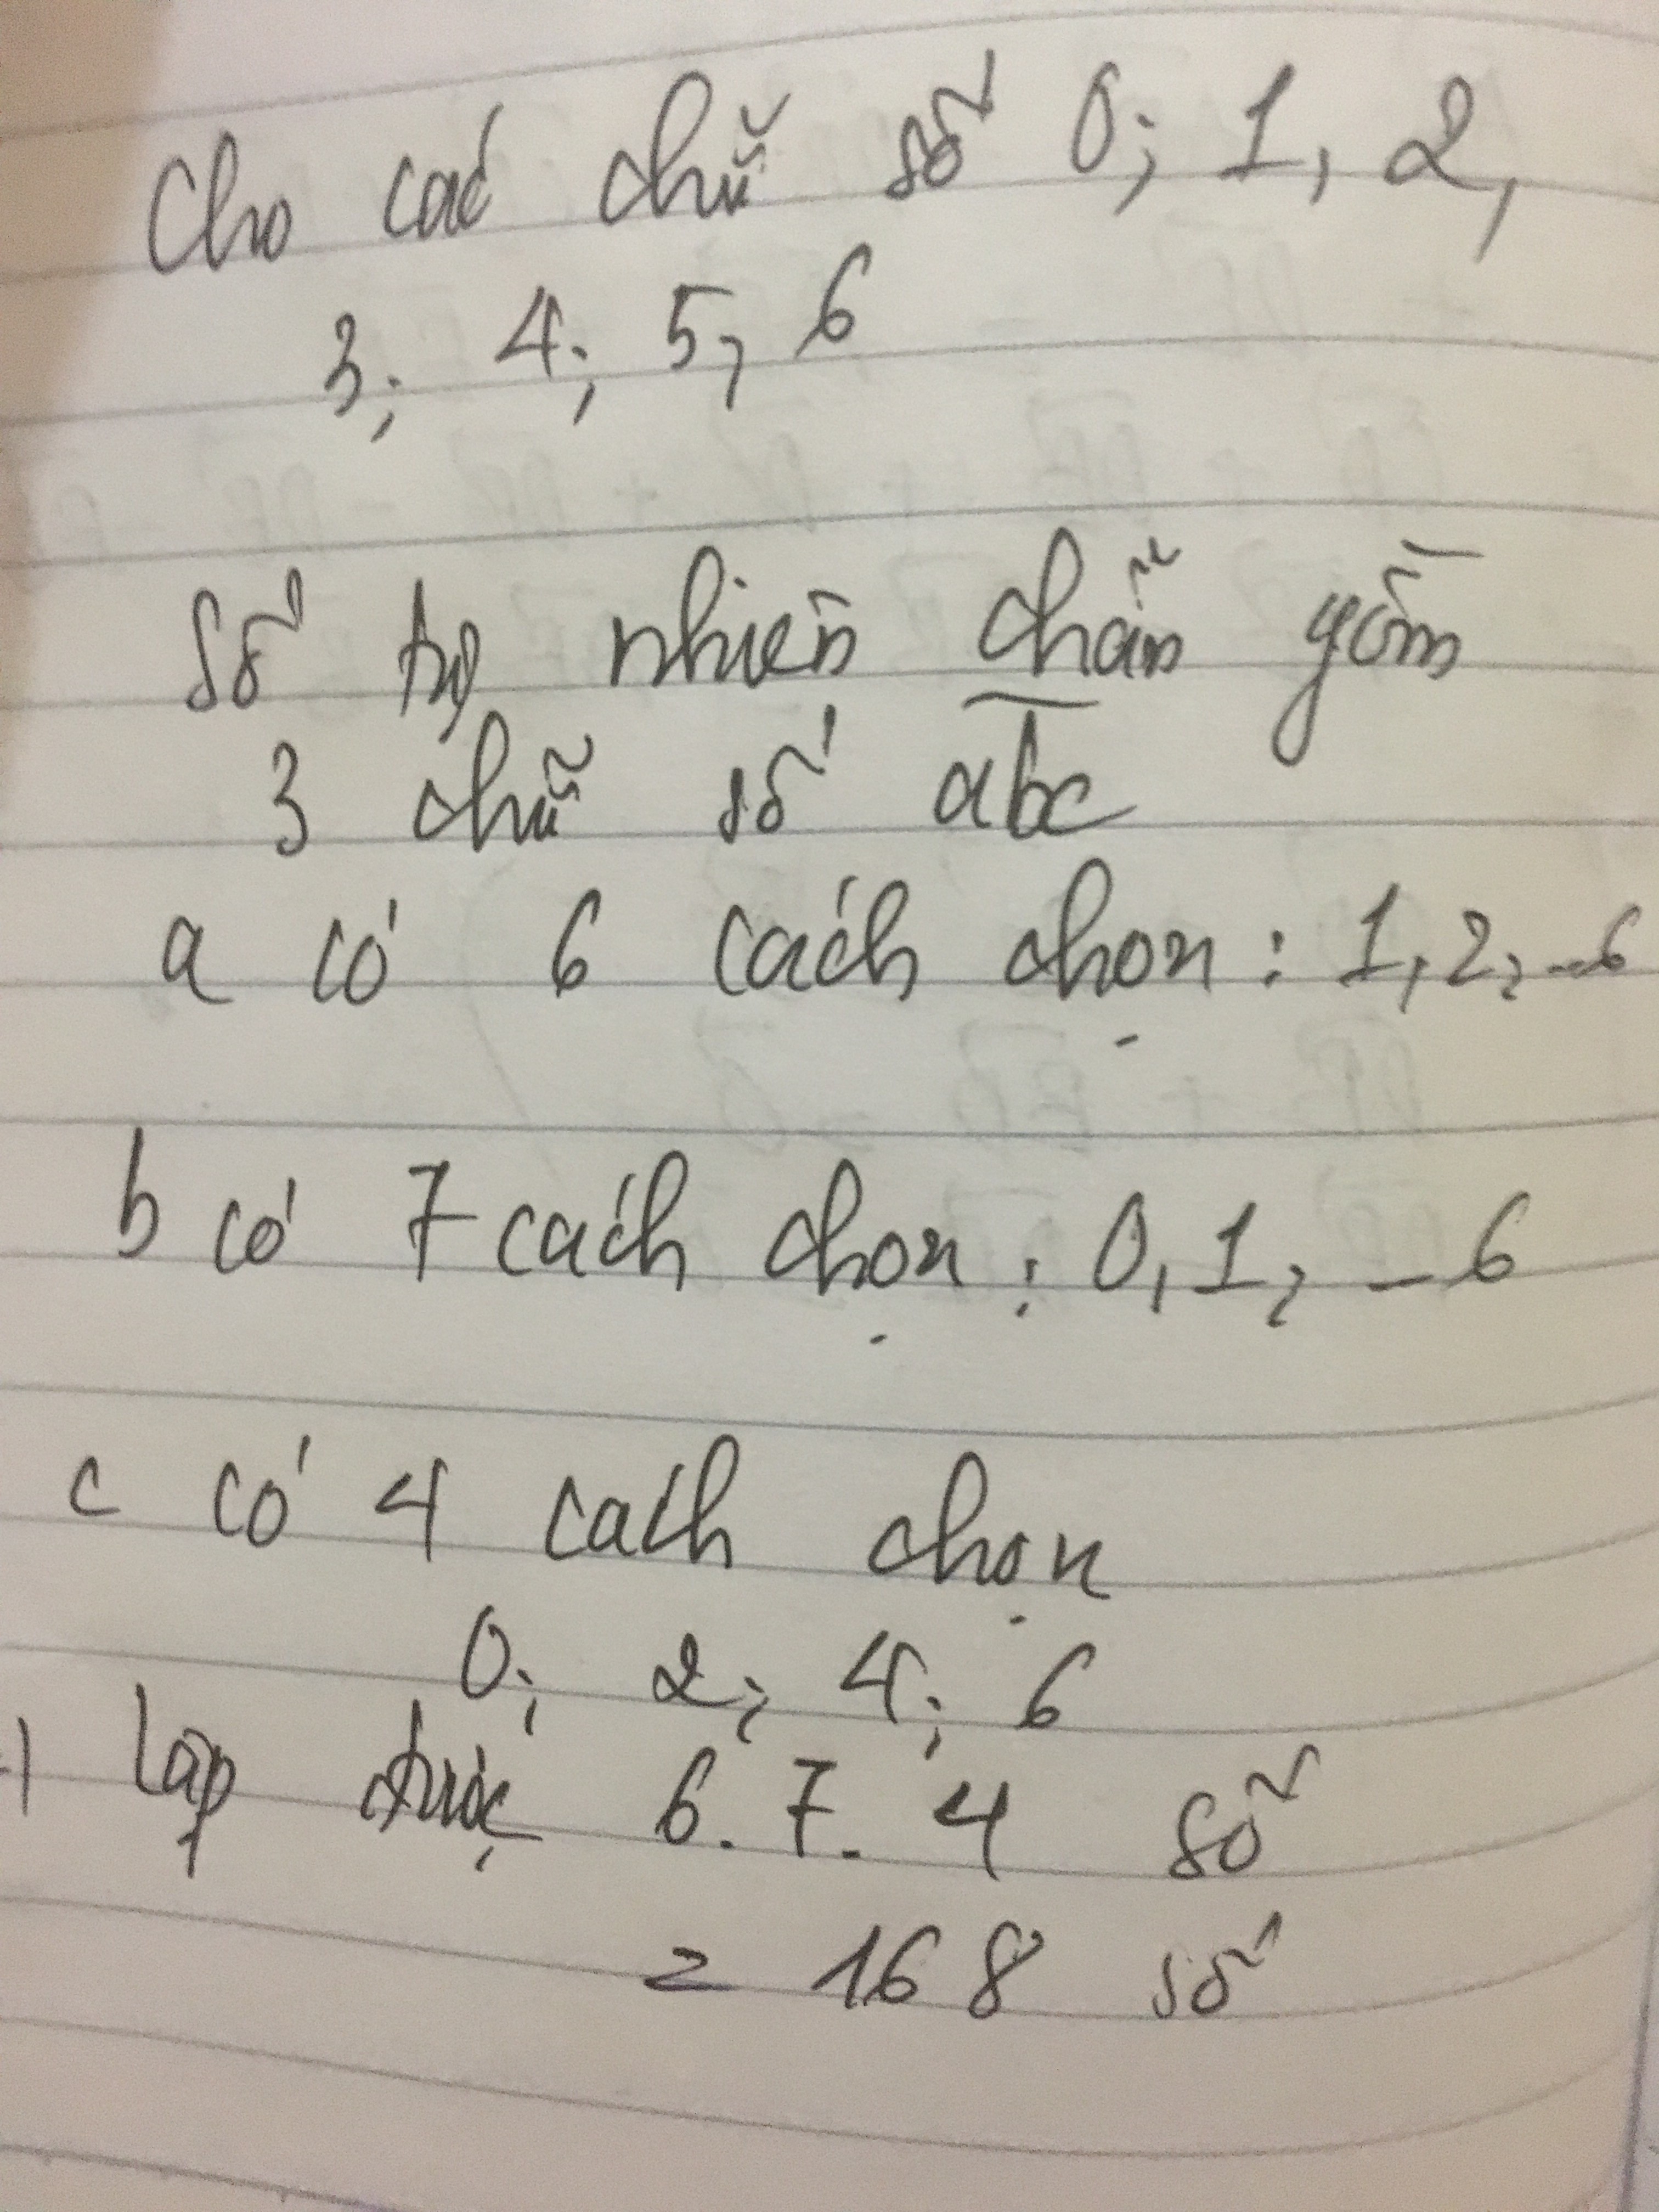 Cho các chữ số 0; 1, 2,
3; 4; 5, 6
Số tự nhiên chẵn gồm
3 chữ số abc
a có 6 cách chọn : 1, 2, ...6
b có 7 cách chọn : 0, 1, ... 6
c có 4 cách chọn
0; 2; 4; 6
lập được 6. 7. 4 số
= 168 số